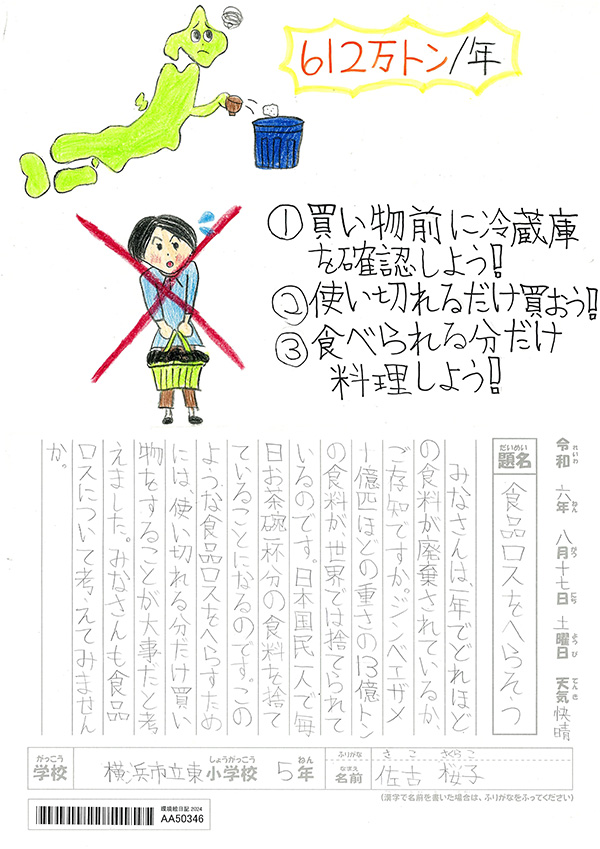 612万トン/年
①買い物前に冷蔵庫
を確認しよう!
②使い切れるだけ買おう!
③食べられる分だけ
料理しよう!
令和 六年 八月十七日 土曜日 天気 快晴
れいわ ねん がつ にち ようび てんき
だいめい
題名 食品ロスをへらそう
みなさんは、一年でどれほど
の食料が廃棄されているか、
ご存知ですか。ジンベエザメ
一億匹ほどの重さの13億トン
の食料が、世界では捨てられて
いるのです。日本国民一人で毎
日お茶碗一杯分の食料を捨て
ていることになるのです。この
ような食品ロスをへらすため
には、使い切れる分だけ買い
物をすることが大事だと考
えました。みなさんも食品
ロスについて考えてみません
か。
がっこう しょうがっこう ねん ふりがな さこ さくらこ
学校 横浜市立東小学校 5年 なまえ 名前 佐古 桜子
(漢字で名前を書いた場合は、ふりがなをふってください)
環境絵日記 2024
AA50346